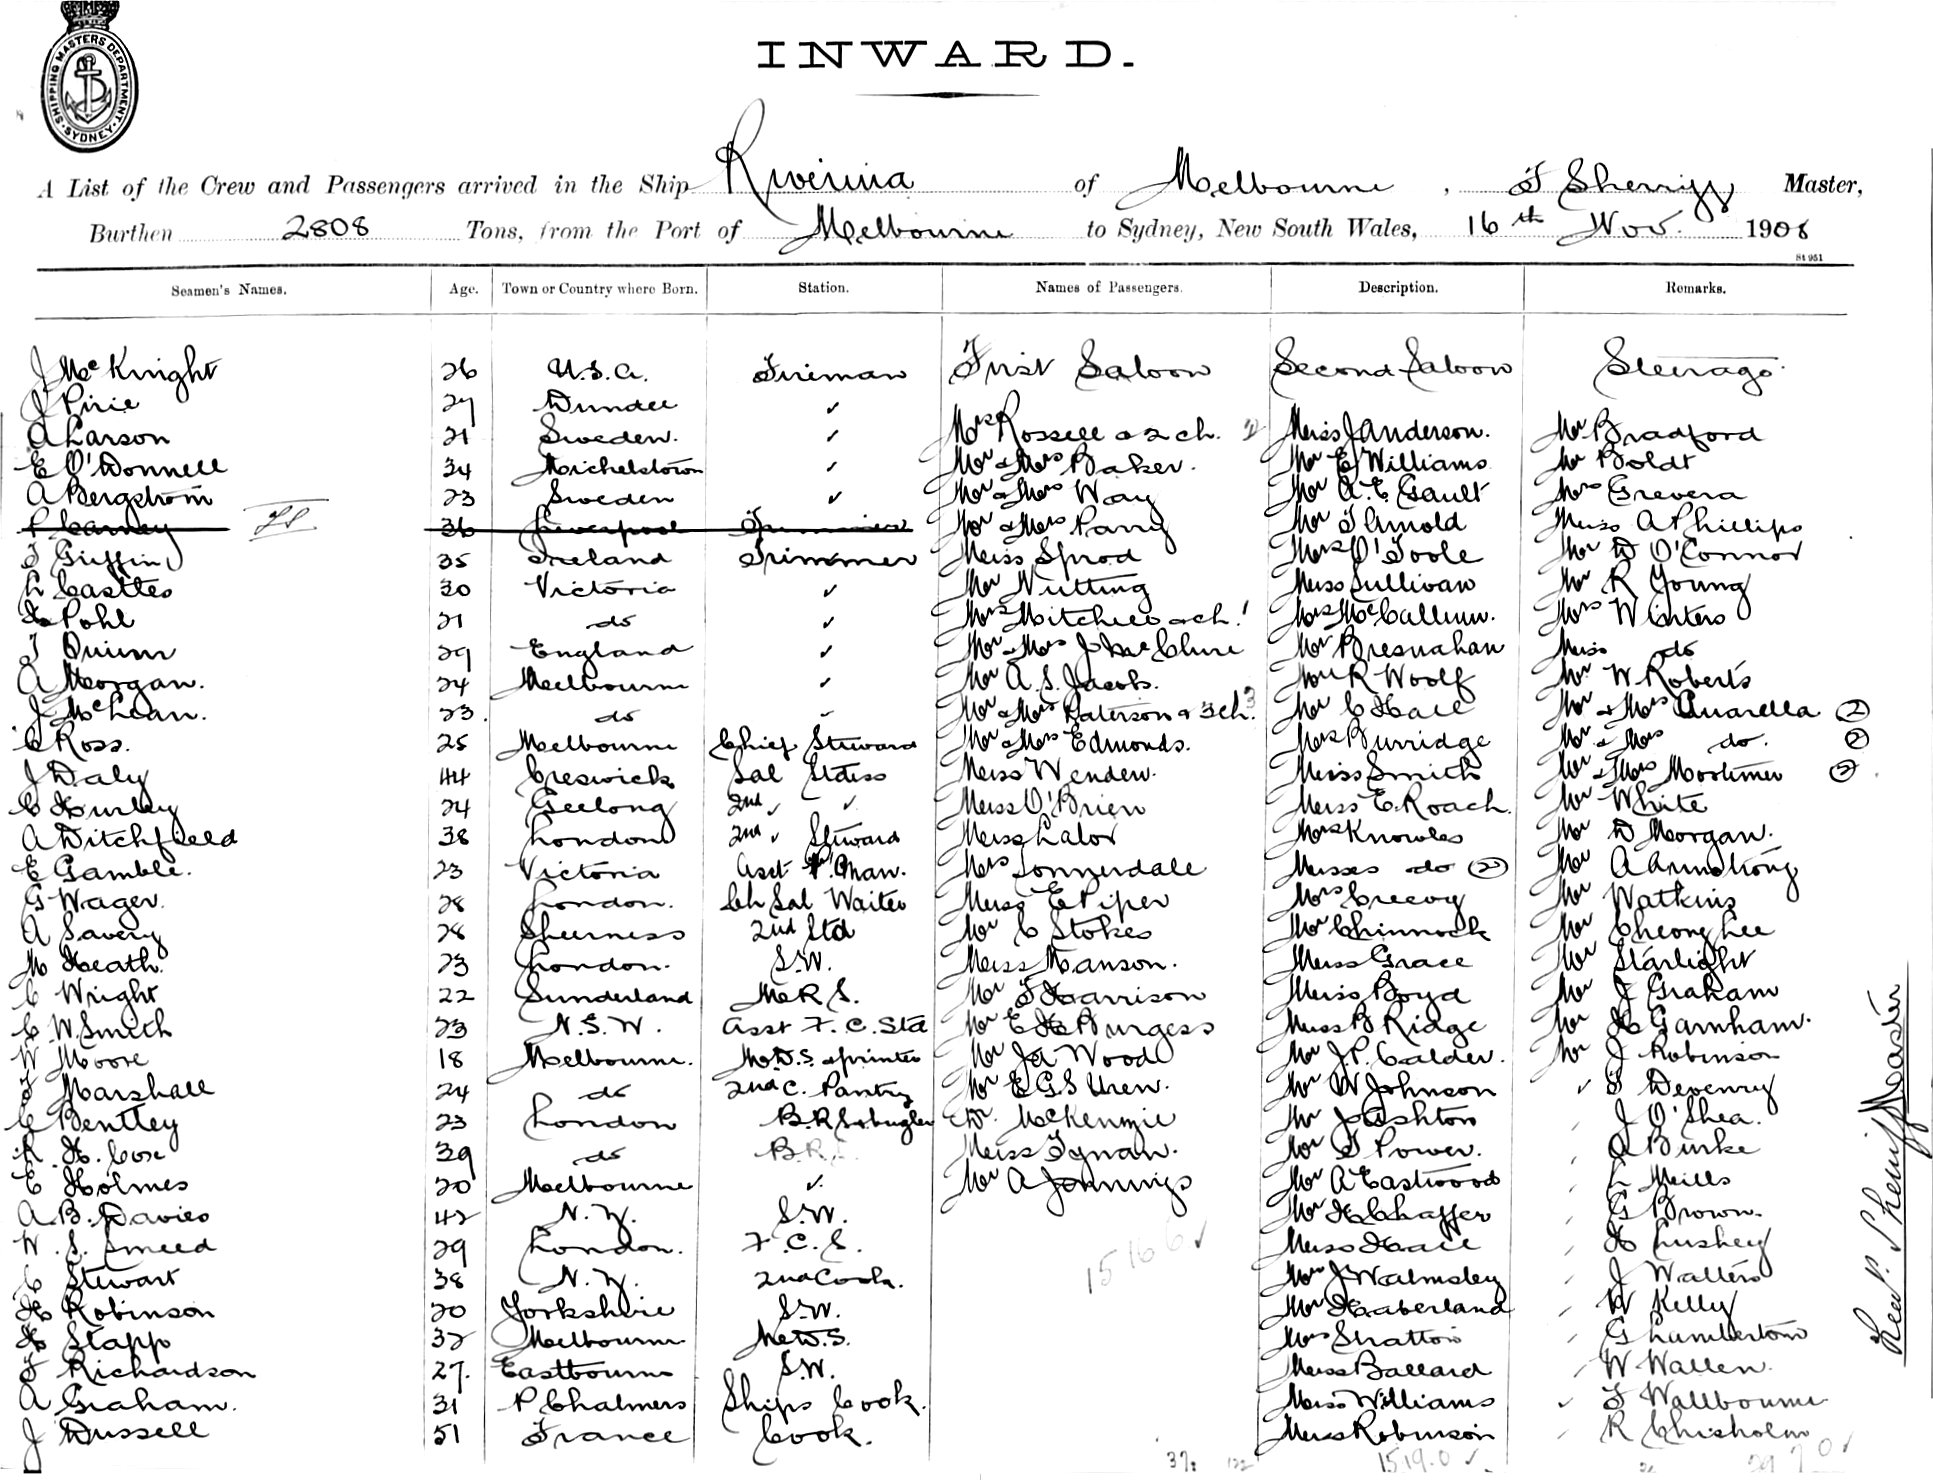 SHIPPING MASTERS DEPARTMENT. SYDNEY
INWARD.
A List of the Crew and Passengers arrived in the Ship Riverina of Melbourne, T Sherriff Master,
Burthen 2808 Tons, from the Port of Melbourne to Sydney, New South Wales, 16th Nov. 1908
St 951
Seamen's Names. Age. Town or Country where Born. Station. Names of Passengers. Description. Remarks.
J McKnight 26 U.S.A. Fireman First Saloon Second Saloon Steerage
J Pirie 27 Dundee ✓
A Larson 21 Sweden. ✓ Mrs Rossell & 2 ch. 2 Miss J Anderson. Mr Bradford
E O'Donnell 34 Mitchelstown ✓ Mr & Mrs Baker. Mr E Williams Mr Boldt
A Bergstrom 23 Sweden ✓ Mr & Mrs Way Mr A. E. Gault Mrs Grevera
P Carney 36 Liverpool Trimmer Mr & Mrs Parry Mr T Arnold Miss A Phillips
T Griffin 35 Ireland Trimmer Miss Sprod Mrs O'Toole Mr D O'Connor
L Castles 30 Victoria ✓ Mr Nutting Miss Sullivan Mr R Young
H Pohl 21 do ✓ Mrs Mitchell & ch. 1 Mrs McCallum. Mrs Winters
T Quinn 29 England ✓ Mr & Mrs J McClure Mr Bresnahan Miss do
A Morgan. 24 Melbourne ✓ Mr A. S. Jacobs. Mr R Woolf Mr W Roberts
J McLean. 23. do ✓ Mr & Mrs Paterson & 3 ch. 3 Mr C Hall Mr & Mrs Quarella 2
C Ross. 25 Melbourne Chief Steward Mr & Mrs Edmonds. Mrs Burridge Mr & Mrs do. 2
J Daly 44 Creswick Sal Stdess Miss Wenden. Miss Smith Mr & Mrs Mortimer 2
C Hurley 24 Geelong 2nd ✓ ✓ Miss O'Brien Miss E. Roach Mr White
A Ditchfield 38 London 2nd ✓ Steward Miss Lalor Mrs Knowles Mr D Morgan.
E Gamble. 23 Victoria Asst P. Man. Mrs Sonnerdale Misses do 2 Mr A Armstrong
G Wager. 28 London. Ch Sal Waiter Miss E Piper Mrs Creevy Mr Watkins
A Savery 28 Sheerness 2nd Std Mr C Stokes Mr Chinnock Mr Cheong Lee
M Heath. 23 London. S.W. Miss Manson. Miss Grace Mr Starlight
C Wright 22 Sunderland M R S. Mr T Harrison Miss Boyd Mr J Graham
C. W. Smith 23 N.S.W. Asst F. C. Std Mr E H Burgess Miss B Ridge Mr H Garnham.
W Moore 18 Melbourne. M.D.S. & printer Mr J A Wood Mr J. P. Calder. Mr J Robinson
J Marshall 24 do 2nd C. Pantry Mr E G S Uren. Mr W Johnson ✓ T Devenry
C Bentley 23 London B.R.S & bugler Mr McKenzie Mr J Ashton J O'Shea.
R. H. Cox 39 do B.R.S. Miss Tynan. Mr T Power. A Burke
E Holmes 20 Melbourne ✓ Mr A Jennings Mr A Eastwood L Mills
A. B. Davies 42 N. Z. S.W. Mr H Chaffer G Brown.
W. S. Smeed 29 London. F. C. S. 15 16 6 ✓ Miss Hall H Lushey
C Stewart 38 N. Z. 2nd Cook. Mr J Walmsley J Walters
H Robinson 20 Yorkshire S.W. Mr Haberland W Kelly
H Stapp 32 Melbourne M.W.S. Mrs Stratton G Lumbertom
F Richardson 27. Eastbourne S.W. Miss Ballard W Wallen.
A Graham. 31 P Chalmers Ships Cook. Miss Williams ✓ F Wallbourne
J Dussell 51 France Cook. Miss Robinson R Chisholm
37. 15 19. 0 ✓ 29 7 0 ✓
Sherriff Master